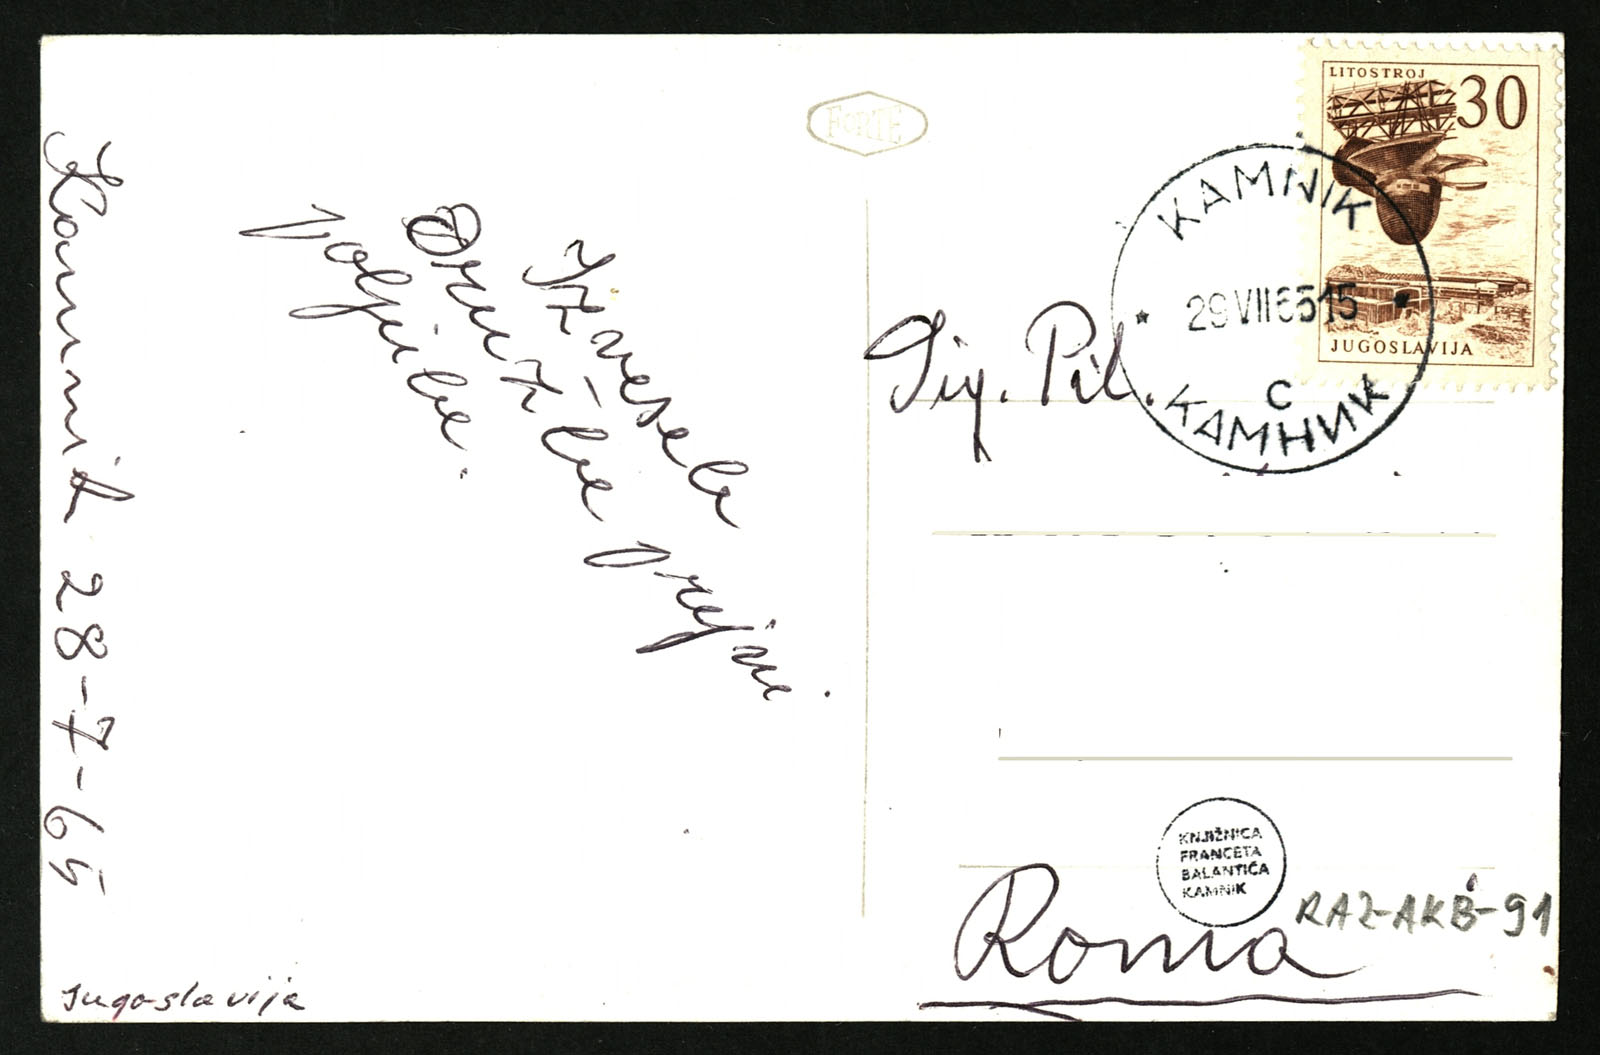 Kamnik 28-7-65
Izvesele
Družbe prejmi
poljube.
Jugoslavija
FORTE
LITOSTROJ
30
JUGOSLAVIJA
KAMNIK
29 VII 65 15
C
КАМНИК
Sig. Pil.
KNJIŽNICA
FRANCETA
BALANTIČA
KAMNIK
RAZ-AKB-91
Roma